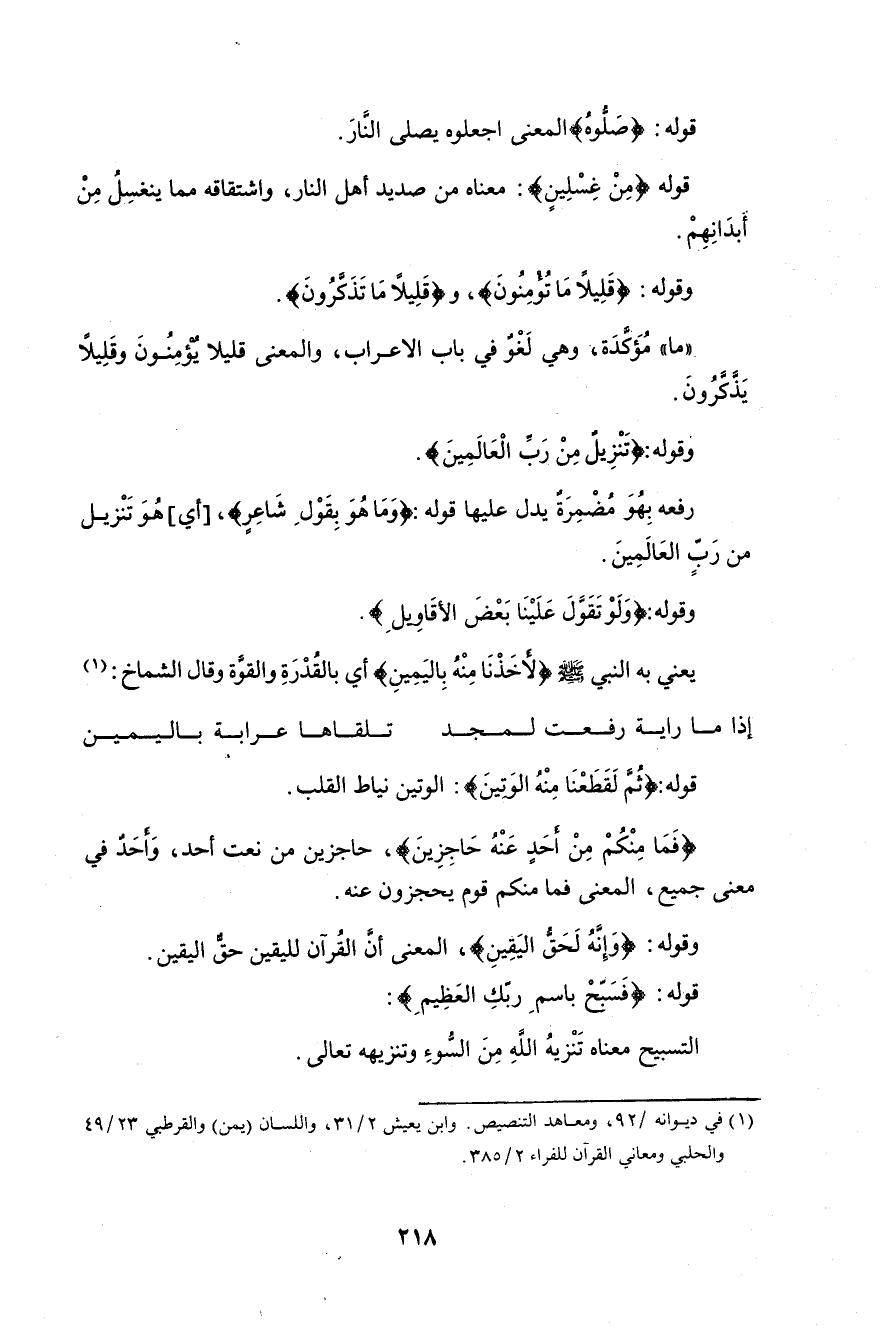 قوله: ﴿صَلُّوهُ﴾ المعنى اجعلوه يصلى النَّارَ.
قوله ﴿مِنْ غِسْلِينٍ﴾: معناه من صديد أهل النار، واشتقاقه مما ينغسِلُ مِنْ
أَبدَانِهِمْ.
وقوله: ﴿قَلِيلًا مَا تُؤْمِنُونَ﴾، و ﴿قَلِيلًا مَا تَذَكَّرُونَ﴾.
«ما» مُؤَكَّدَة، وهي لَغْوٌ في باب الاعراب، والمعنى قليلا يُؤمِنُونَ وقَلِيلًا
يَذَّكَّرُونَ.
وقوله: ﴿تَنْزِيلٌ مِنْ رَبِّ الْعَالَمِينَ﴾.
رفعه بِهُوَ مُضْمِرَةٌ يدل عليها قوله: ﴿وَمَا هُوَ بِقَوْلِ شَاعِرٍ﴾، [أي] هُوَ تَنْزيل
من رَبِّ العَالَمِينَ.
وقوله: ﴿وَلَوْ تَقَوَّلَ عَلَيْنَا بَعْضَ الأقَاوِيلِ﴾.
يعني به النبي ﷺ ﴿لأَخَذْنَا مِنْهُ بِاليَمِينِ﴾ أي بالقُدْرَةِ والقوَّة وقال الشماخ: (١)
إذا ما راية رفعت لمجد تلقاها عرابة باليمين
قوله: ﴿ثُمَّ لَقَطَعْنَا مِنْهُ الوَتِينَ﴾: الوتين نياط القلب.
﴿فَمَا مِنْكُمْ مِنْ أَحَدٍ عَنْهُ حَاجِزِينَ﴾، حاجزين من نعت أحد، وَأَحَدٌ في
معنى جميع، المعنى فما منكم قوم يحجزون عنه.
وقوله: ﴿وَإِنَّهُ لَحَقُّ اليَقِينِ﴾، المعنى أنَّ القُرآن لليقين حقُّ اليقين.
قوله: ﴿فَسَبِّحْ باسمِ ربّكِ العَظِيمِ﴾:
التسبيح معناه تَنْزيهُ اللَّهِ مِنَ السُّوءِ وتنزيهه تعالى.
(١) في ديوانه /٩٢، ومعاهد التنصيص. وابن يعيش ٣١/٢، واللسان (يمن) والقرطبي ٤٩/٢٣
والحلبي ومعاني القرآن للفراء ٣٨٥/٢.
٢١٨